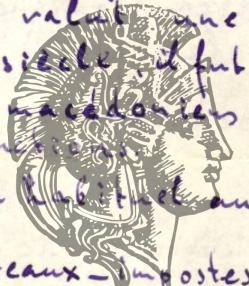 valut une
siècle, il fut
macédoniens
habituel au
eaux-imposte